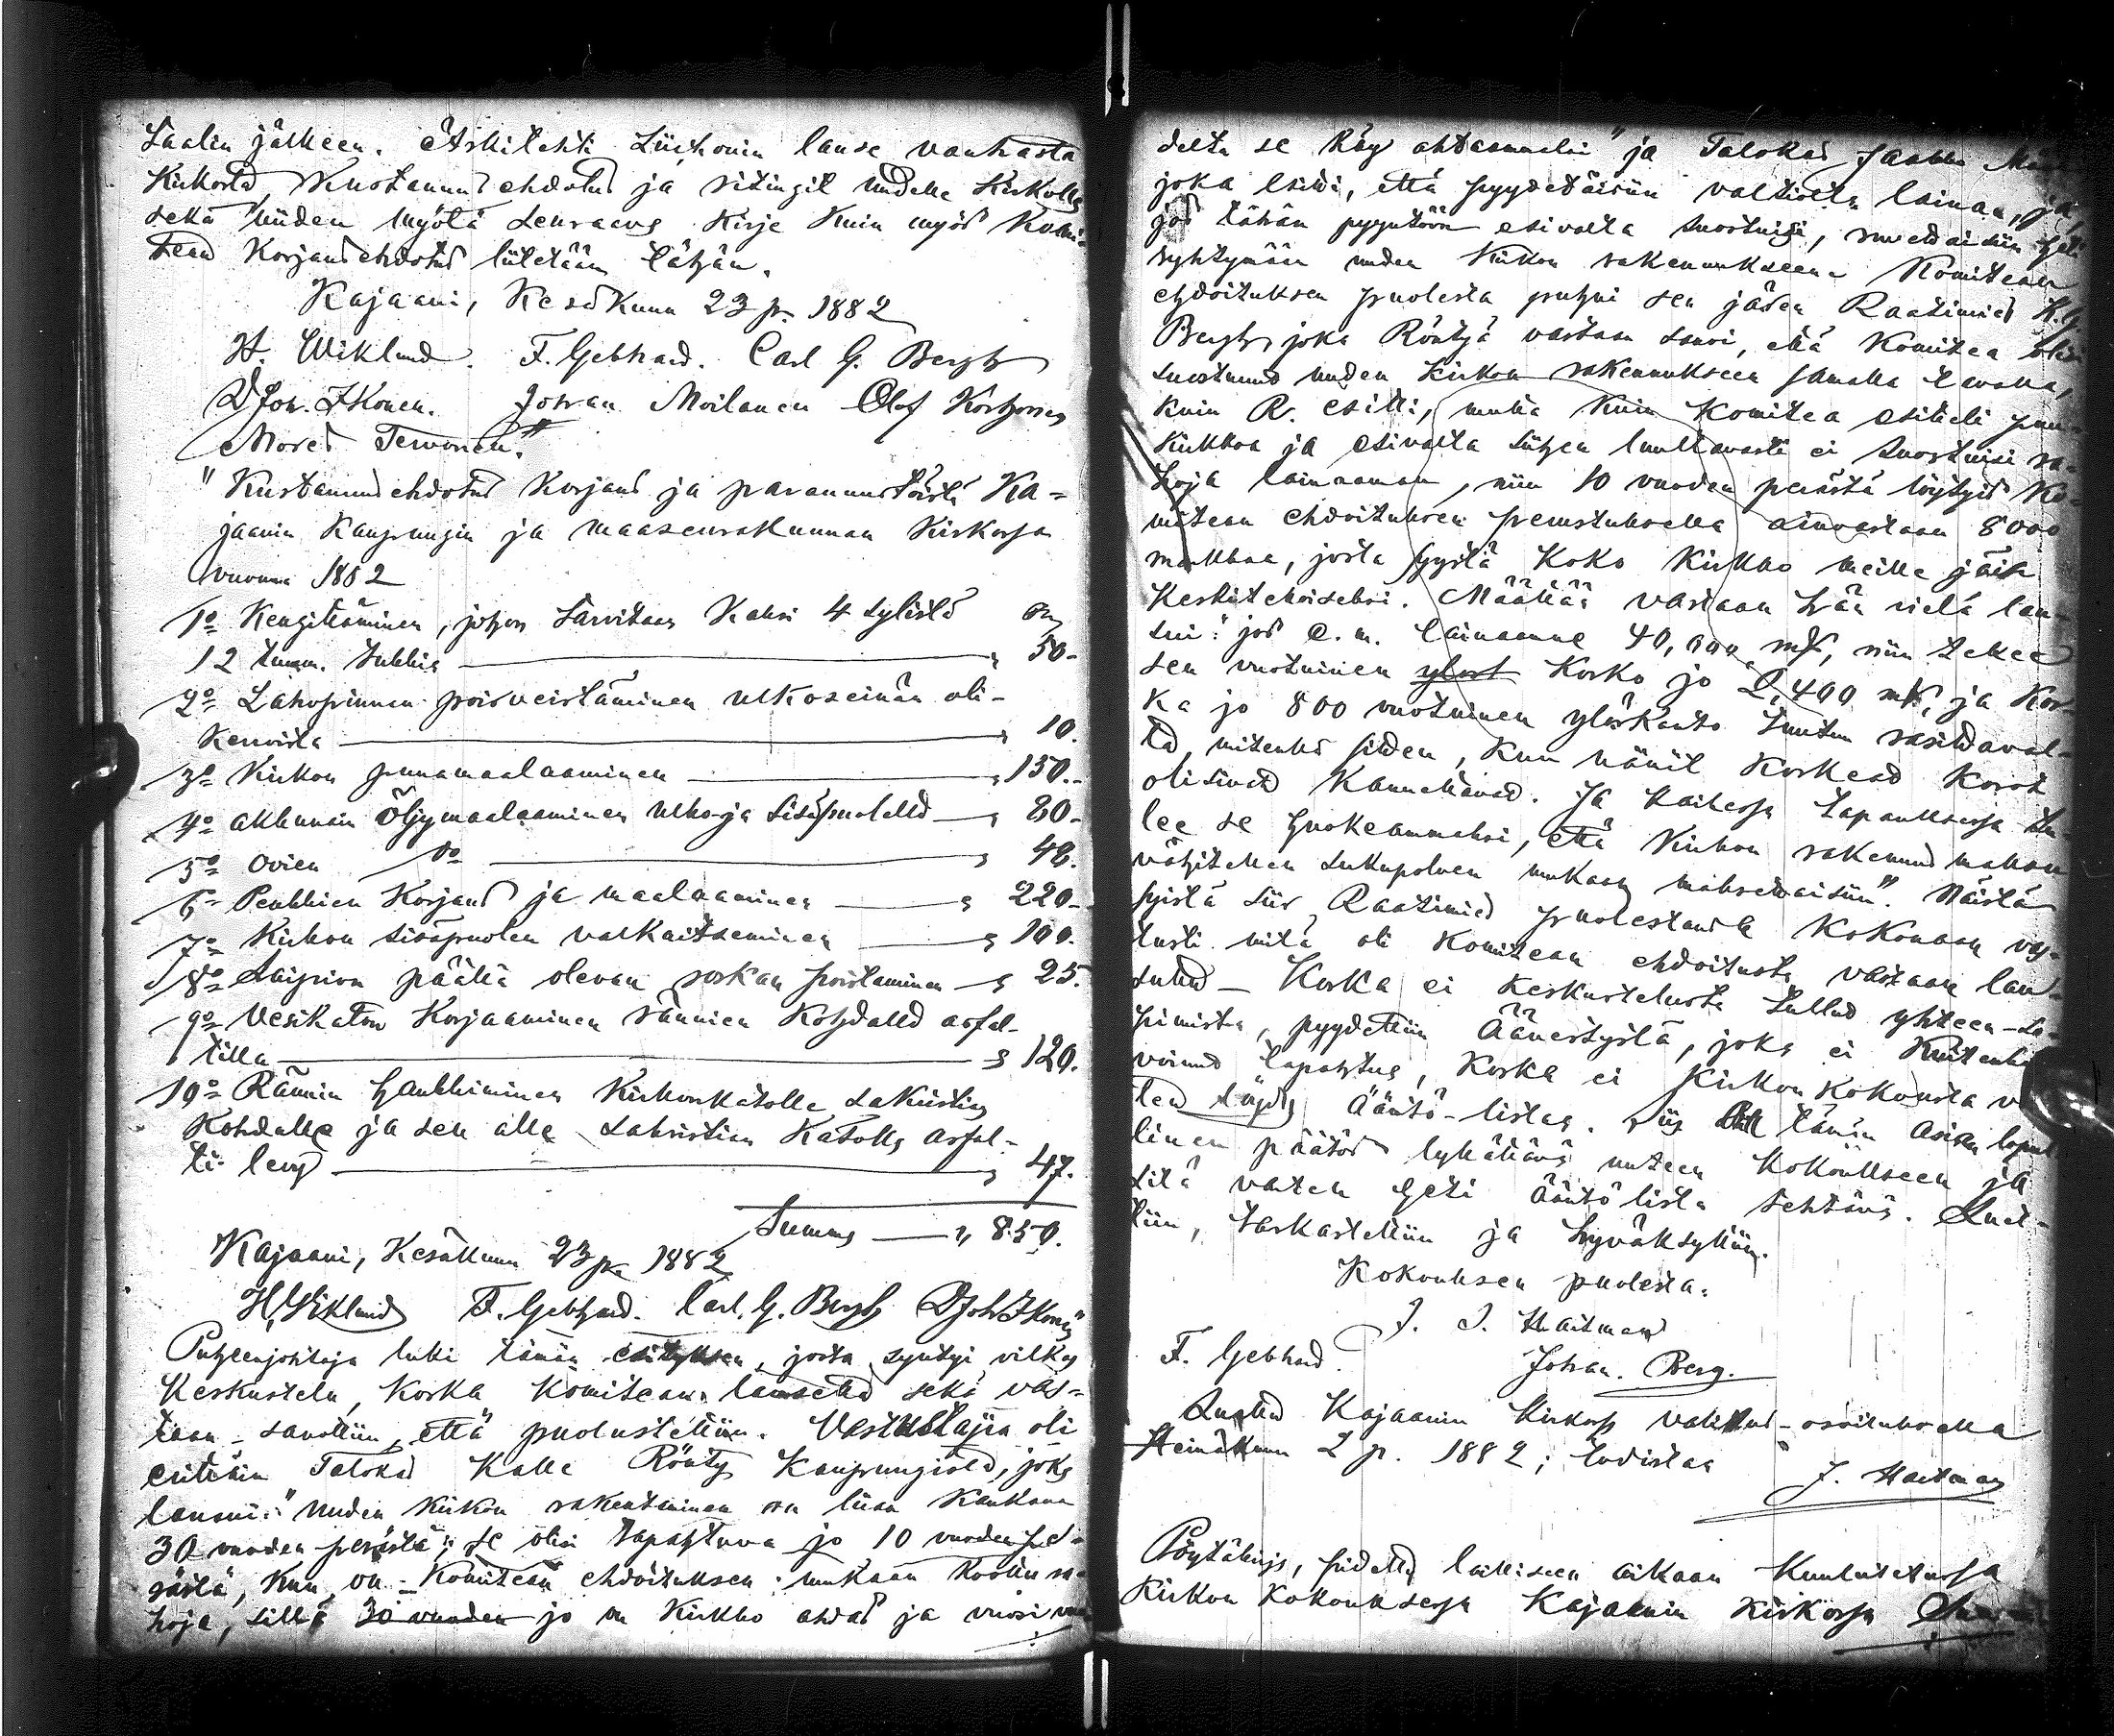 Saalin jälkeen. Arkitehti Liichonin lause vanhasta
Kirkosta, Kustannus ehdotus ja ritingit uudelle Kirkolle
sekä niiden myötä seuraava Kirje Kuin myös Komi-
tean Korjausehdotus liitetään tähän.
Kajaani, Kesäkuun 23 p. 1882
H. Wiklund. F. Gebhard. Carl G. Bergh
D Joh. Ikonen. Johan Moilanen Olof Korhonen
Mores Tervonen."
"Kustannusehdotus Korjaus ja parannustöistä Ka=
jaanin Kaupungin ja maaseurakunnan Kirkossa
vuonna 1882
1o Kengittäminen, johon tarvitaan Kaksi 4 sylistä
12 tuum. tukkia — " 50-
2o Lahopinnan poisveistäminen ulkoseinän ali-
Kerroista — " 10.
3o Kirkon punamaalaaminen — " 150.-
4o akkunain öljymaalaaminen ulko- ja sisäpuolelta — " 80-
5o Ovien Do — " 48.
6o Penkkien Korjaus ja maalaaminen — " 220-
7o Kirkon sisäpuolen valkaitseminen — " 100.
8o Laipion päällä olevan roskan poistaminen — " 25.
9o Vesikaton Korjaaminen rännien Kohdalta asfal-
tilla — " 120.
10o Rännin hankkiminen Kirkonkatolle Sakristian
Kohdalle ja sen alle Sakristian Katolle asfal-
ti levy — " 47.
Summa — " 850.
Kajaani, Kesäkuun 23 p. 1882
H. Wiklund F. Gebhard. Carl. G. Bergh D Joh Ikonen"
Puheenjohtaja luki tämän esityksen, josta syntyi vilkas
Keskustelu, Koska Komitean lausetta sekä vas=
taan sanottiin, että puolustettiin. Vastustajia oli
eritäin Talokas Kalle Rönty Kaupungista, joka
lausui: "uuden Kirkon rakentaminen on liian Kaukana
30 vuoden perästä; se olisi tapahtuva jo 10 vuoden pe-
rästä, Kun on Komitean ehdoituksen mukaan Koottu ra-
hoja, sillä 30 vuoden jo on Kirkko ahdas ja vuosi
delta se käy ahtaammaksi" ja Talokas Jaakko
joka esitti, että pyydettäisiin valtiolta lainaa, ja
jos tähän pyyntöön esivalta suostuisi, ruvettaisiin heti
ryhtymään uuden Kirkon rakennukseen. Komitean
ehdoituksen puolesta puhui sen jäsen Raatimies K. G.
Bergh, joka Röntyä vastaan sanoi, että Komitea olisi
suostunut uuden Kirkon rakennukseen samalla tavalla,
Kuin R. esitti, mutta Kuin Komitea esitteli
Kirkkoa ja esivalta siihen luultavasti ei suostuisi ra-
hoja lainaaman, niin 10 vuoden perästä löytyis Ko-
mitean ehdoituksen perustuksella ainoastaan 8000
markkaa, josta syystä Koko Kirkko meille jäisi
Keskitekoiseksi. Määttää vastaan hän vielä lau-
sui: jos e.m. lainaamme 40,000 mk, niin tekee
sen vuotuinen ylost Korko jo 2,400 mk, ja Kos-
Ka jo 800 vuotuinen yloskanto tuntuu rasittaval-
ta, mitenkä sitten, Kun nämät Korkeat Korot
olisivat Kannettavat. Ja kaikessa tapauksessa tu-
lee se huokeammaksi, että Kirkon rakennus maksu
vähitellen sukupolven mukaan maksettaisiin". Näistä
syistä siis Raatimies puolestansa Kokonaan vas-
tusti mitä oli Komitean ehdoitusta vastaan lau-
suttu — Koska ei Keskustelusta tullut yhteen-so-
pimista, pyydettiin Äänestystä, joka ei Kuitenkaan
voinut tapahtua, Koska ei Kirkon Kokousta
ten löydy ääntö-listaa. Siis tämän asian lopul
linen päätös lykättävä uuteen Kokoukseen ja
sitä varten heti ääntölista tehtävä. Luet-
tiin, tarkastettiin ja hyväksyttiin.
Kokouksen puolesta.
J. J. Hartman
F. Gebhard. Johan. Berg.
Luettu Kajaanin Kirkossa valitus-osoituksella
Heinäkuun 2 p. 1882; todistaa
J. Hartman
Pöytäkirja, pidetty lailliseen aikaan Kuulutetussa
Kirkon Kokouksessa Kajaanin Kirkossa